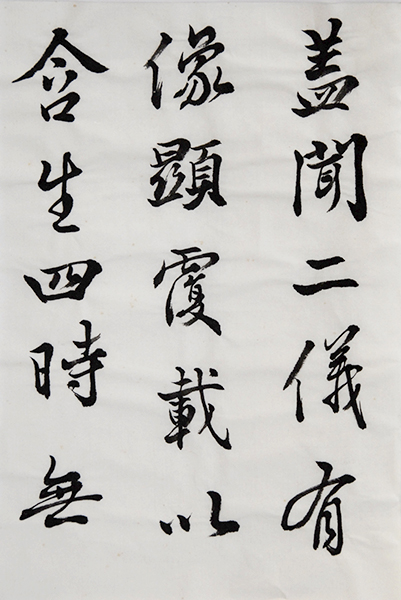 蓋聞二儀有
像顯覆載以
含生四時無